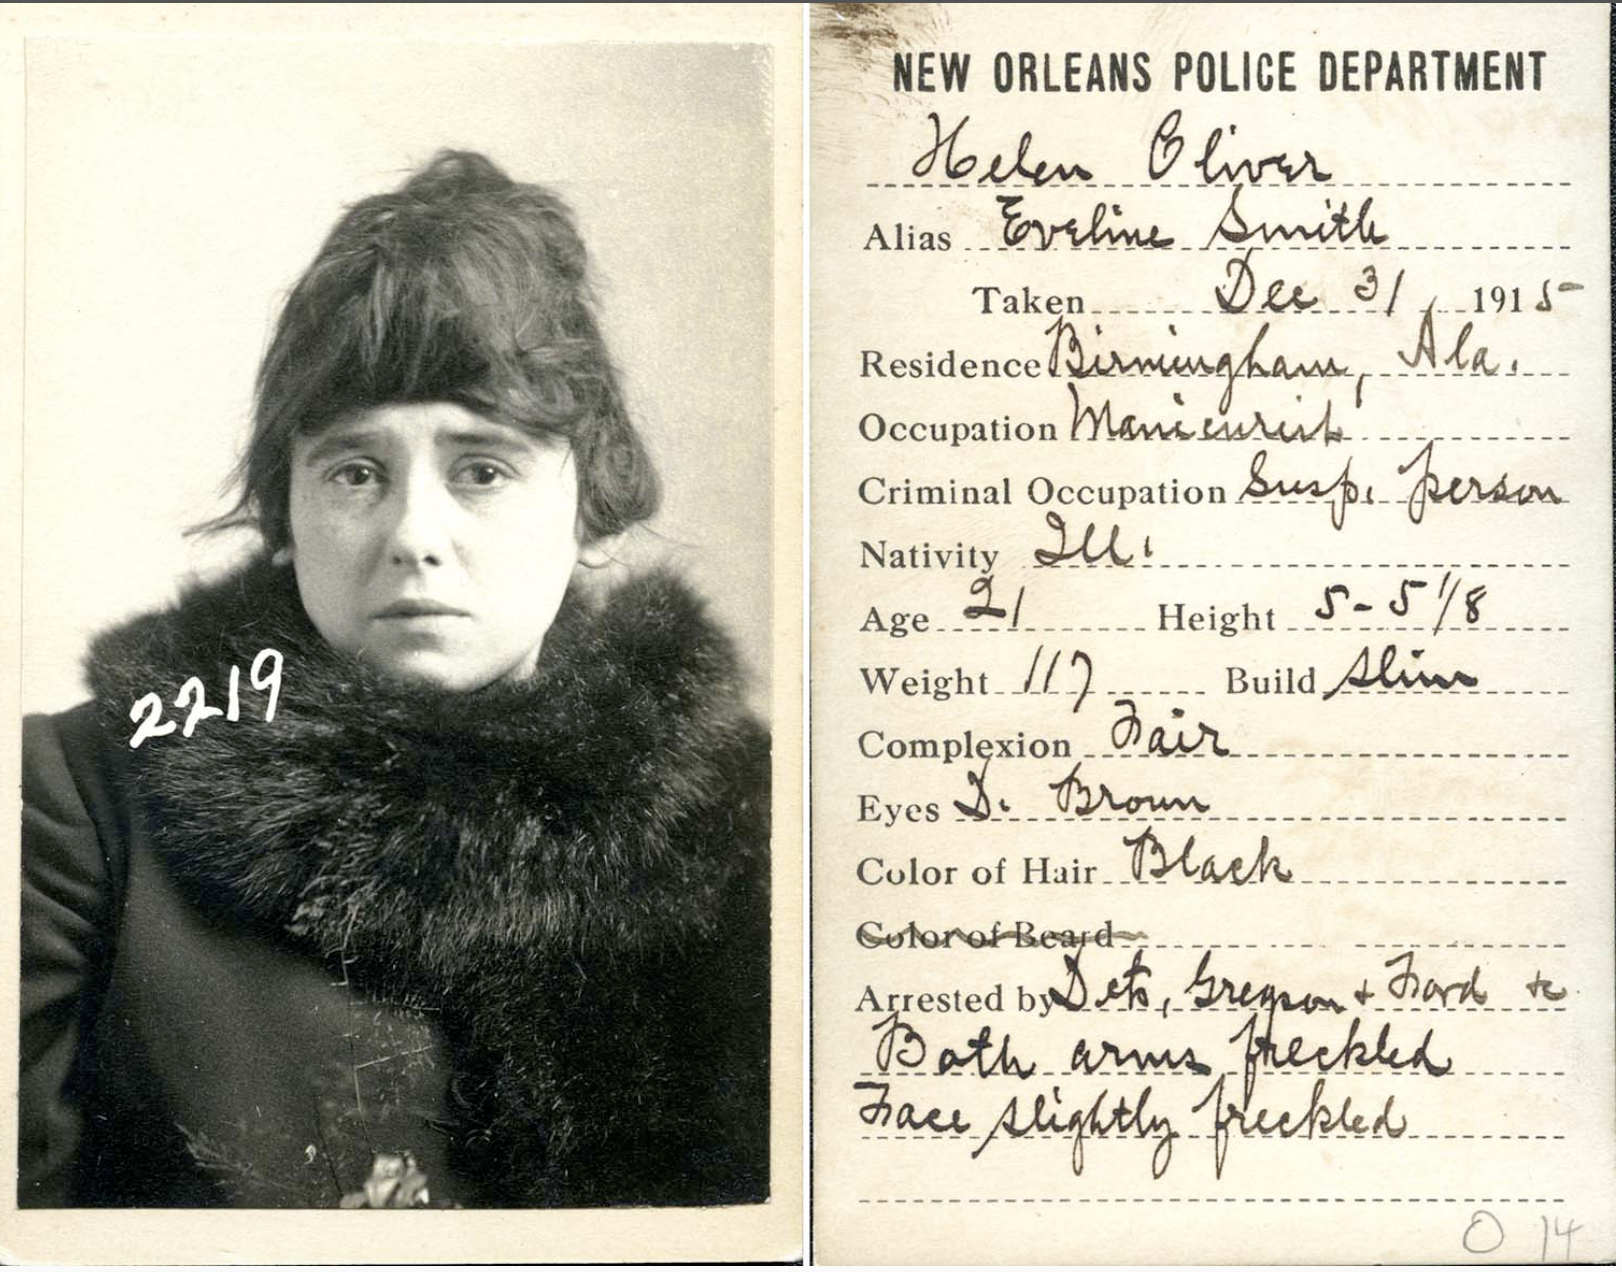 2219
NEW ORLEANS POLICE DEPARTMENT
Helen Oliver
Alias Eveline Smith
Taken Dec 31, 1915
Residence Birmingham, Ala.
Occupation Manicurist
Criminal Occupation Susp. person
Nativity Ill.
Age 21 Height 5-5 1/8
Weight 117 Build Slim
Complexion Fair
Eyes D. Brown
Color of Hair Black
Color of Beard
Arrested by Dets, Gregson + Ford &c
Both arms freckled
Face slightly freckled
O 14